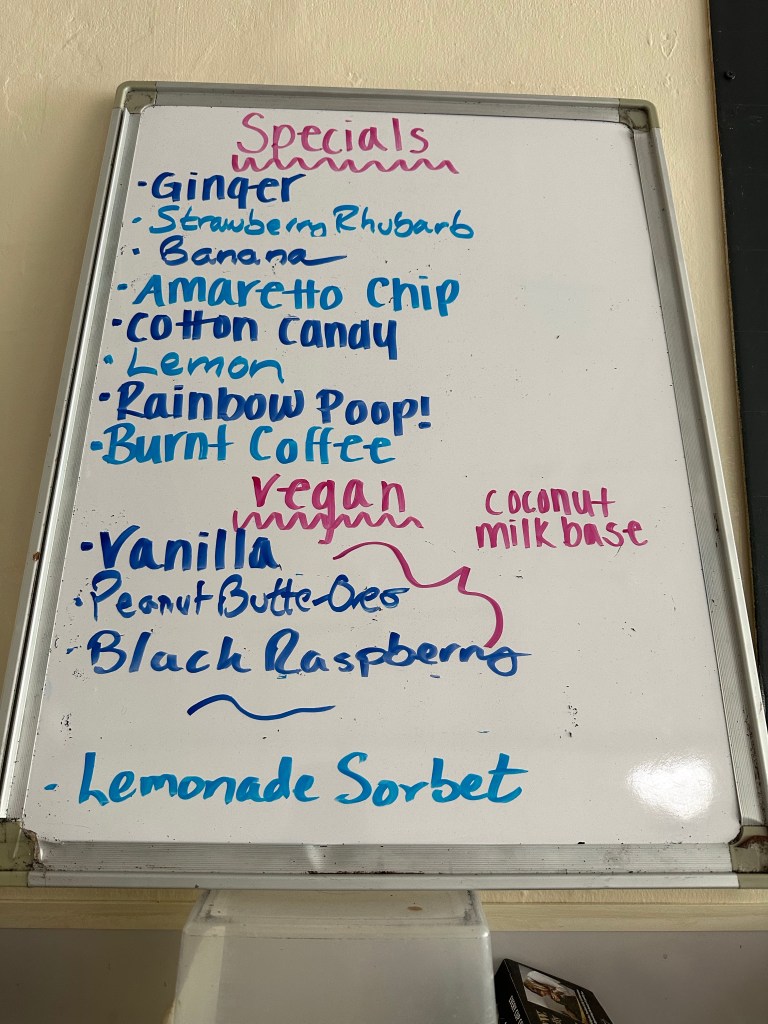 Specials
·Ginger
·Strawberry Rhubarb
·Banana
·Amaretto Chip
·Cotton Candy
·Lemon
·Rainbow Poop!
·Burnt Coffee
vegan
coconut
milk base
·Vanilla
·Peanut Butte-Oreo
·Black Raspberry
·Lemonade Sorbet